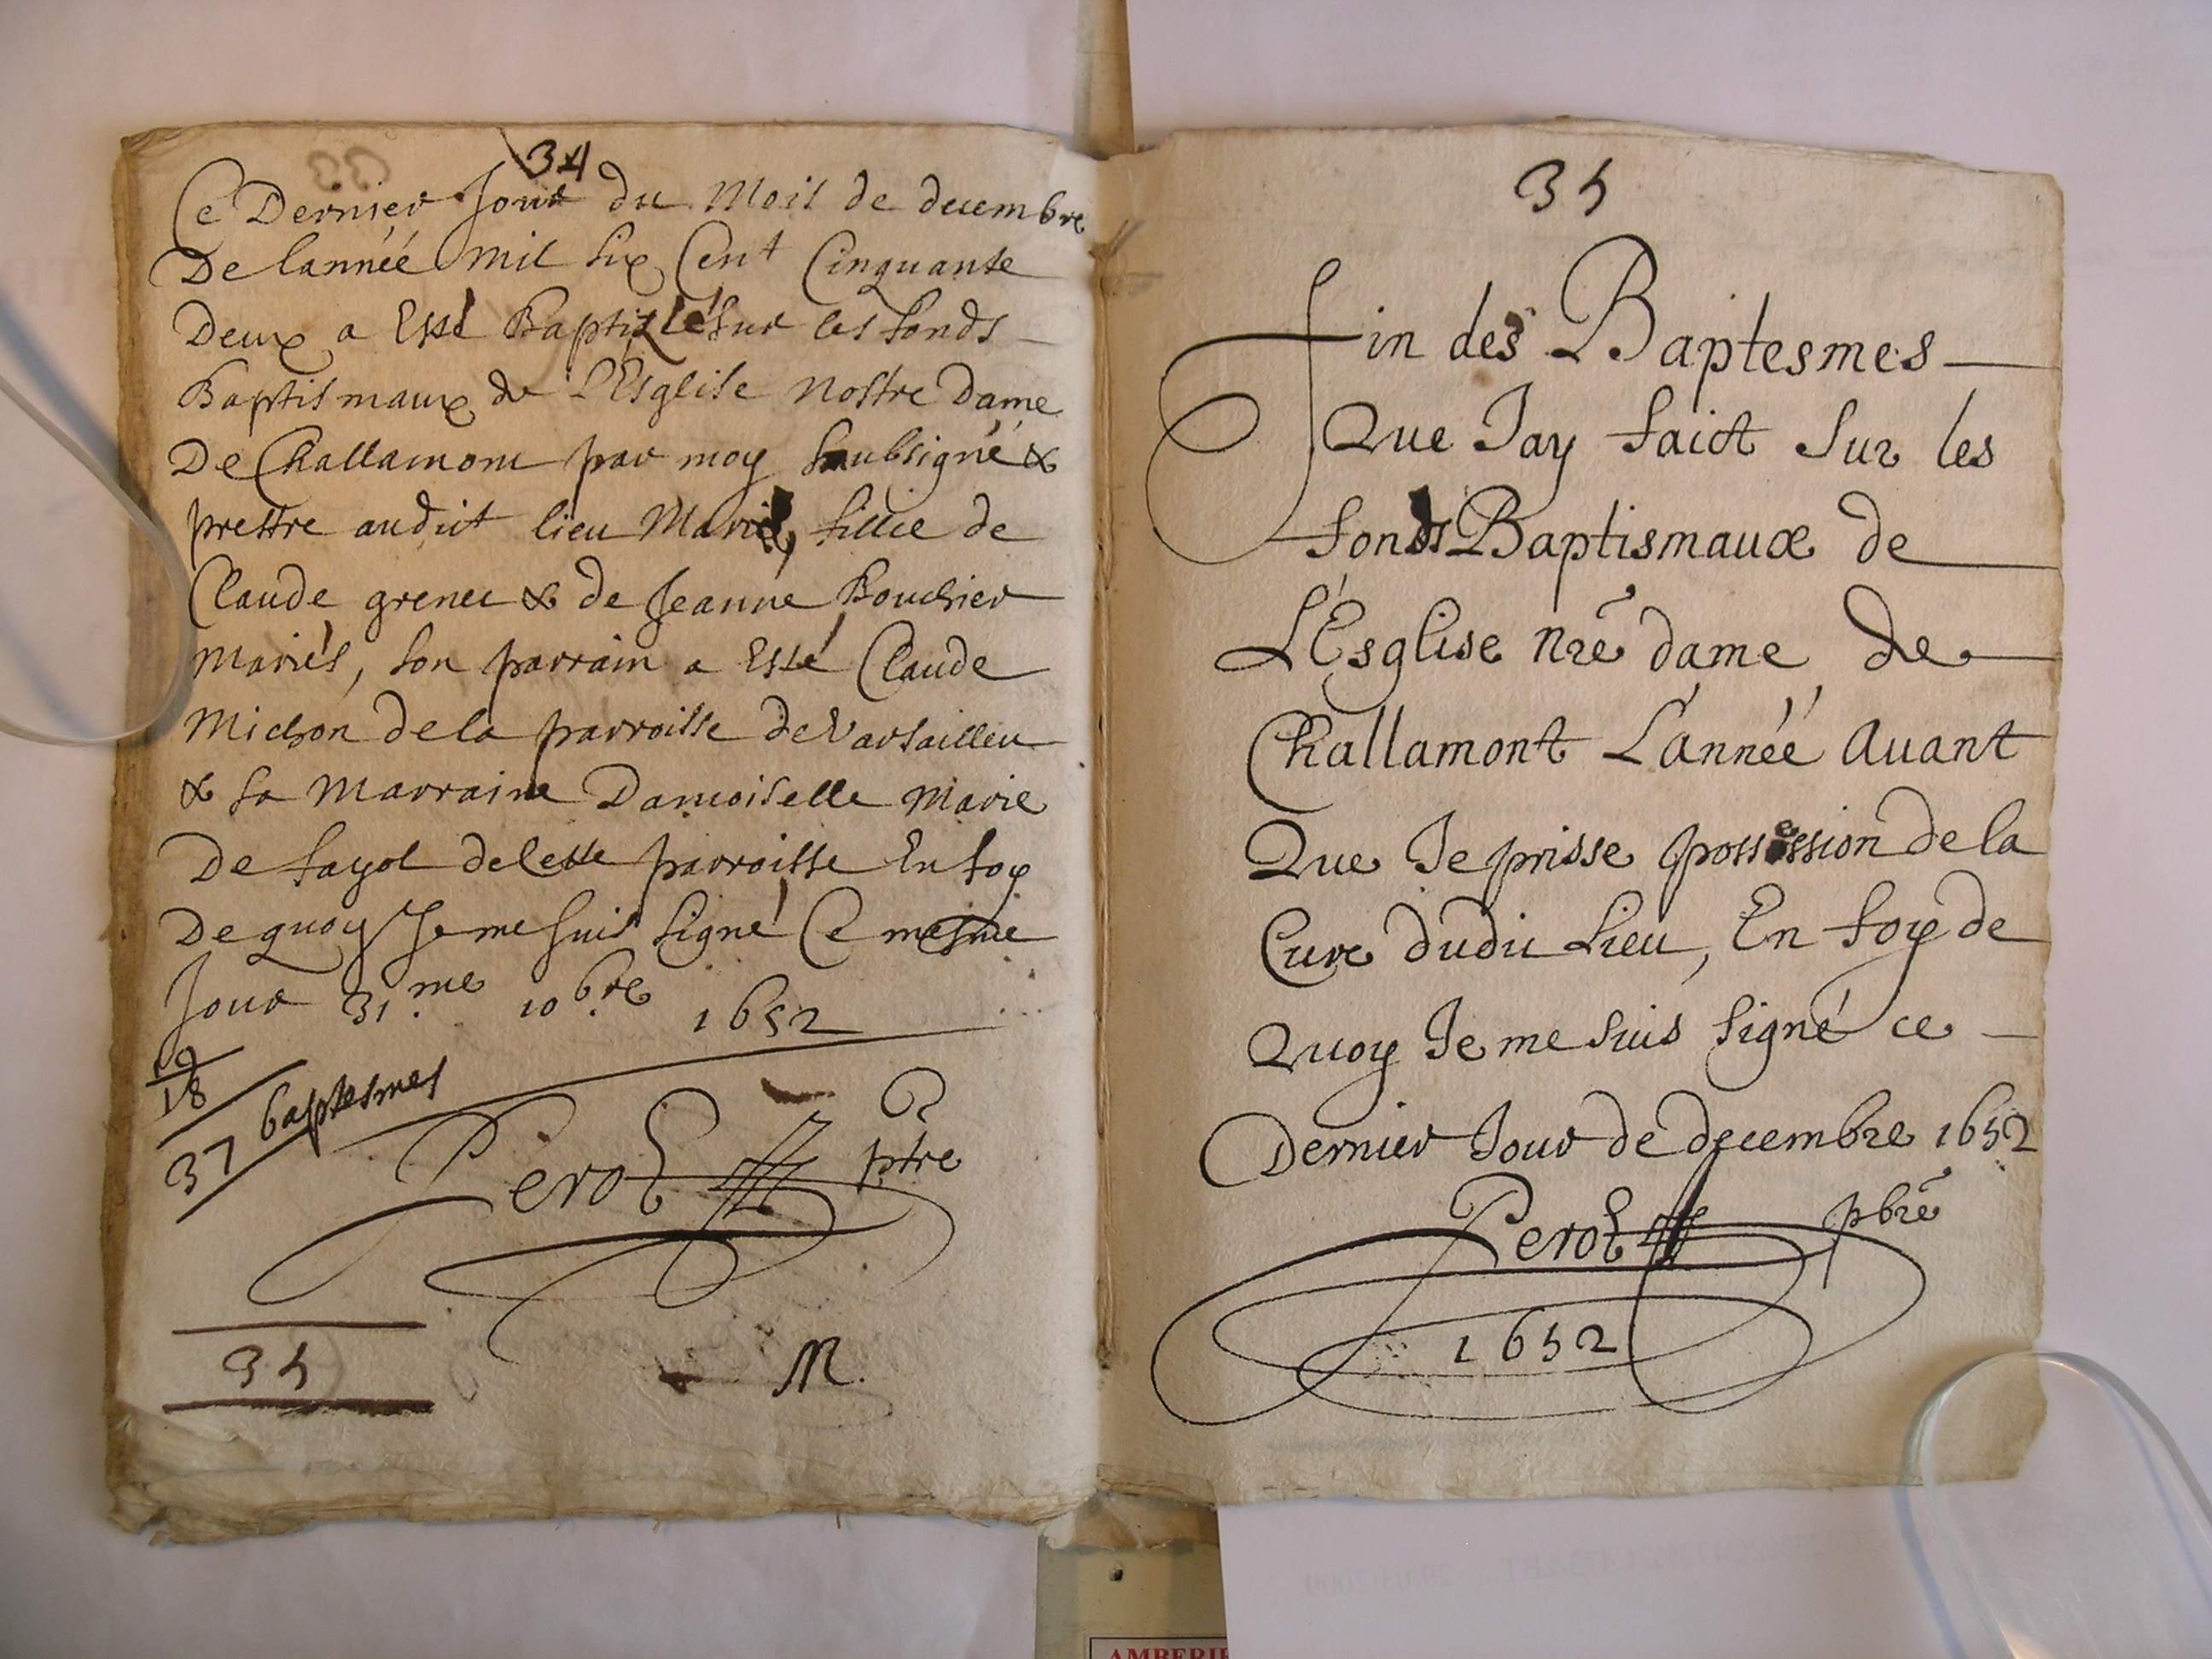 34
Ce Dernier Jour du Mois de decembre
De lannéé mil six Cent Cinquante
Deux a Esté Baptizéé sur les fonds
Baptismaux de L'Esglise nostre Dame
De Challamont par moy soubsigné &
prestre audict lieu Marie, fillie de
Claude grenec & de Jeanne Bouchier
Mariés, son parrain a Esté Claude
Michon de la parroisse de Varsailleu
& sa Marraine Damoiselle Marie
De fayol de Cette parroisse En foy
De quoy Je me suis signé Ce mesme
Jour 31.me 10bre 1652
19
18
37 baptesmes
Perot ptre
35
M.
35
Fin des Baptesmes
Que Jay faict sur les
fonds Baptismaux de
L'Esglise nre dame de
Challamont L'annéé Avant
Que Je prisse possession de la
Cure dudit Lieu, En foy de
Quoy Je me suis signé ce
Dernier Jour de decembre 1652
Perot pbre
1652
AMBERIE